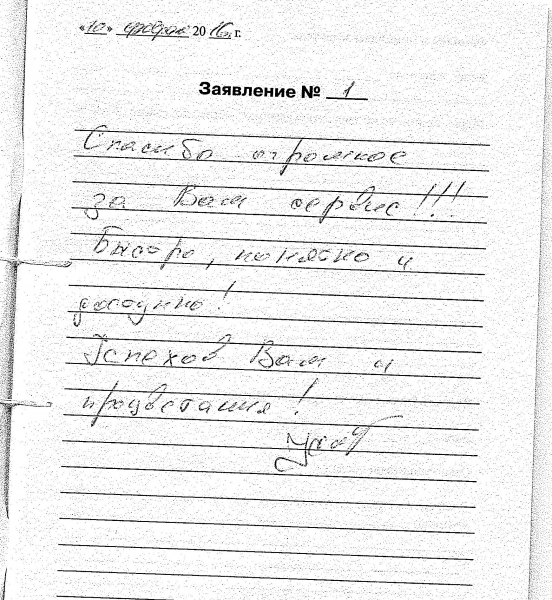 «10» февраля 2016 г.
Заявление № 1
Спасибо огромное
за Ваш сервис!!!
Быстро, понятно и
доходчиво!
Успехов Вам и
процветания!